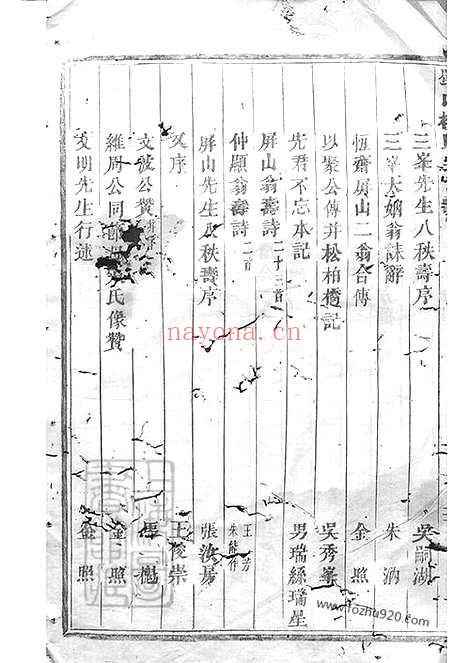 三峯先生八秩壽序 吳嗣湖
三峯太姻翁誄辭 朱汭
恆齋屏山二翁合傳 金照
以聚公傳并松柏橋記 吳秀峯
先君不忘本記 男瑞絲瑞星
屏山翁壽詩二十三首
仲顯翁壽詩二首 王芳 朱能作
屏山先生八秩壽序 張汝
又序 王俊崇
文波公贊 馬一楒
維周公同 氏像贊 金照
文明先生行述 金照
nayona.cn
www.fozhu920.com